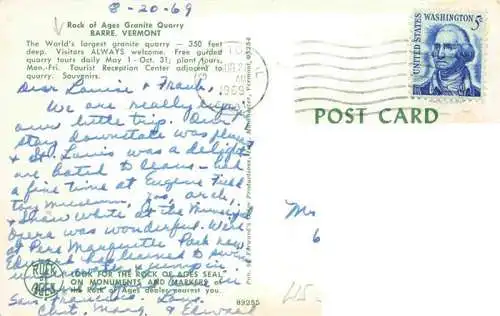 8-20-69
Rock of Ages Granite Quarry
BARRE, VERMONT
The World's largest granite quarry — 350 feet
deep. Visitors ALWAYS welcome. Free guided
quarry tours daily May 1 - Oct. 31; plant tours,
Mon.-Fri. Tourist Reception Center adjacent to
quarry. Souvenirs.
Dear Louise & Frank,
We are really enjoying
our little trip. Our
stay downstate was
& St. Louis was a delight
are hated to leave - had
a fine time at Eugene Field
Toy Museum, Zoo, arch,
& Snow White at the Municipal
Opera was wonderful. Were
at Pere Marquette Park now
Edward has learned to swim
ROCK OF AGES
LOOK FOR THE ROCK OF AGES SEAL
ON MONUMENTS AND MARKERS
The Rock of Ages dealer nearest you.
San Francisco. Love,
Chet, Marg, & Edward
89285
IL
1969
UNITED STATES
WASHINGTON
5c
POST CARD
Mr
6